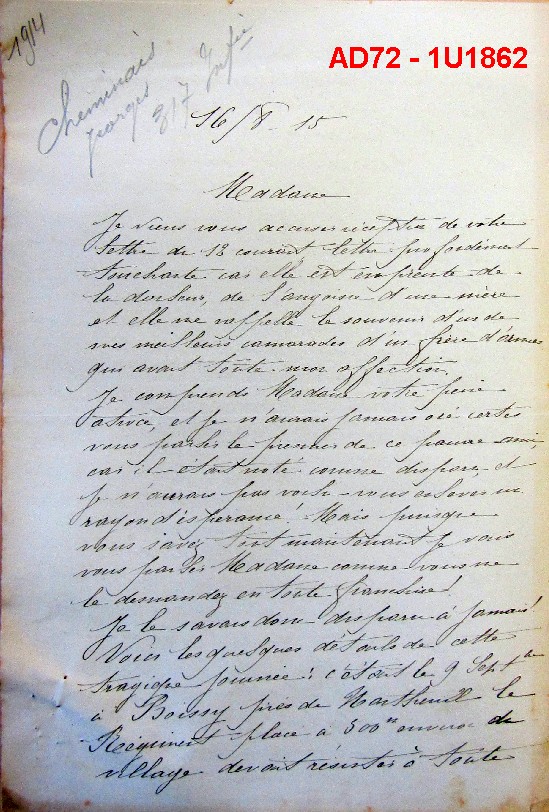 1914
AD72 - 1U1862
Cheminais
Georges
317 Infie
16/8-15
Madame
Je viens vous accuser réception de votre
lettre du 12 courant lettre profondément
touchante car elle est empreinte de
la douleur, de l'angoisse d'une mère
et elle me rappelle le souvenir d'un de
mes meilleurs camarades d'un frère d'armes
qui avait toute mon affection,
Je comprends Madame votre peine
atroce, et je n'aurais jamais osé certes
vous parler le premier de ce pauvre ami,
car il était noté comme disparu, et
je n'aurais pas voulu vous enlever un
rayon d'espérance! Mais puisque
vous savez tout maintenant je vais
vous parler Madame comme vous me
le demandez en toute franchise!
Je le savais donc disparu à jamais!
Voici les quelques détails de cette
tragique journée: c'était le 9 Septbre
à Boissy près de Nantheuill le
Régiment placé à 500m environ du
village devait résister à toute